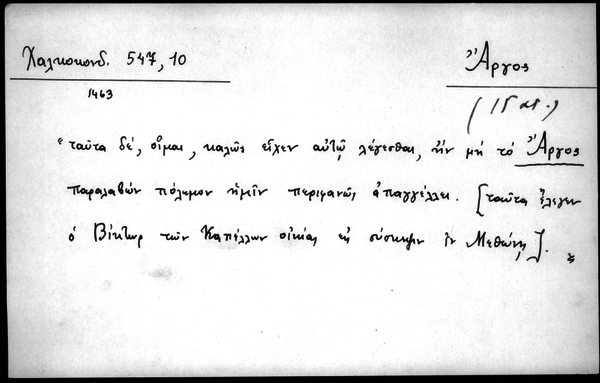 Χαλκοκονδ. 547, 10
Ἄργος
1463
(15 αι.)
"ταῦτα δέ, οἶμαι, καλῶς εἶχεν αὐτῷ λέγεσθαι, ἢν μὴ τὸ Ἄργος
παραλαβὼν πόλεμον ἡμῖν περιφανῶς ἀπαγγέλλει. [ταῦτα ἔλεγεν
ὁ Βίκτωρ τῶν Καπέλλων οἰκίας εἰς σύσκεψιν ἐν Μεθώνῃ].